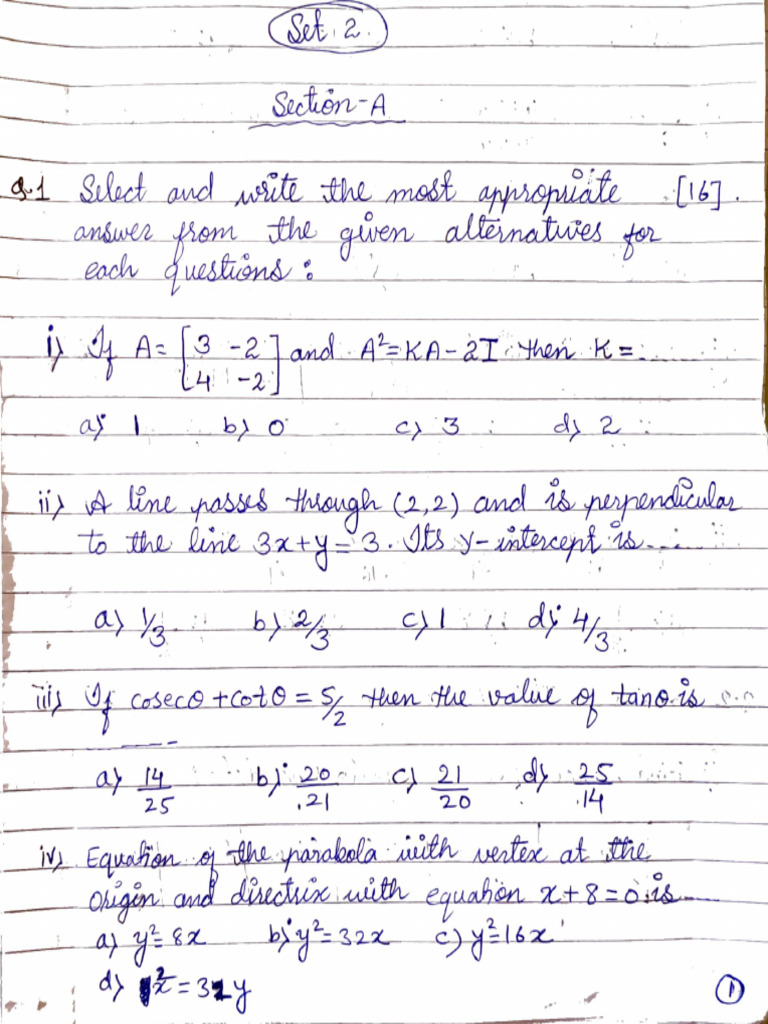 Set. 2.
Section-A
Q.1 Select and write the most appropriate [16].
answer from the given alternatives for
each questions :
i) If A = [3 -2] and A²=KA-2I then K = ......
[4 -2]
a) 1 b) 0 c) 3 d) 2
ii) A line passes through (2,2) and is perpendicular
to the line 3x+y=3. Its y-intercept is......
a) 1/3 b) 2/3 c) 1 d) 4/3
iii) If cosecθ+cotθ = 5/2 then the value of tanθ is ....
a) 14/25 b) 20/21 c) 21/20 d) 25/14
iv) Equation of the parabola with vertex at the
origin and directrix with equation x+8=0 is.....
a) y²=8x b) y²=32x c) y²=16x
d) x²=32y
1